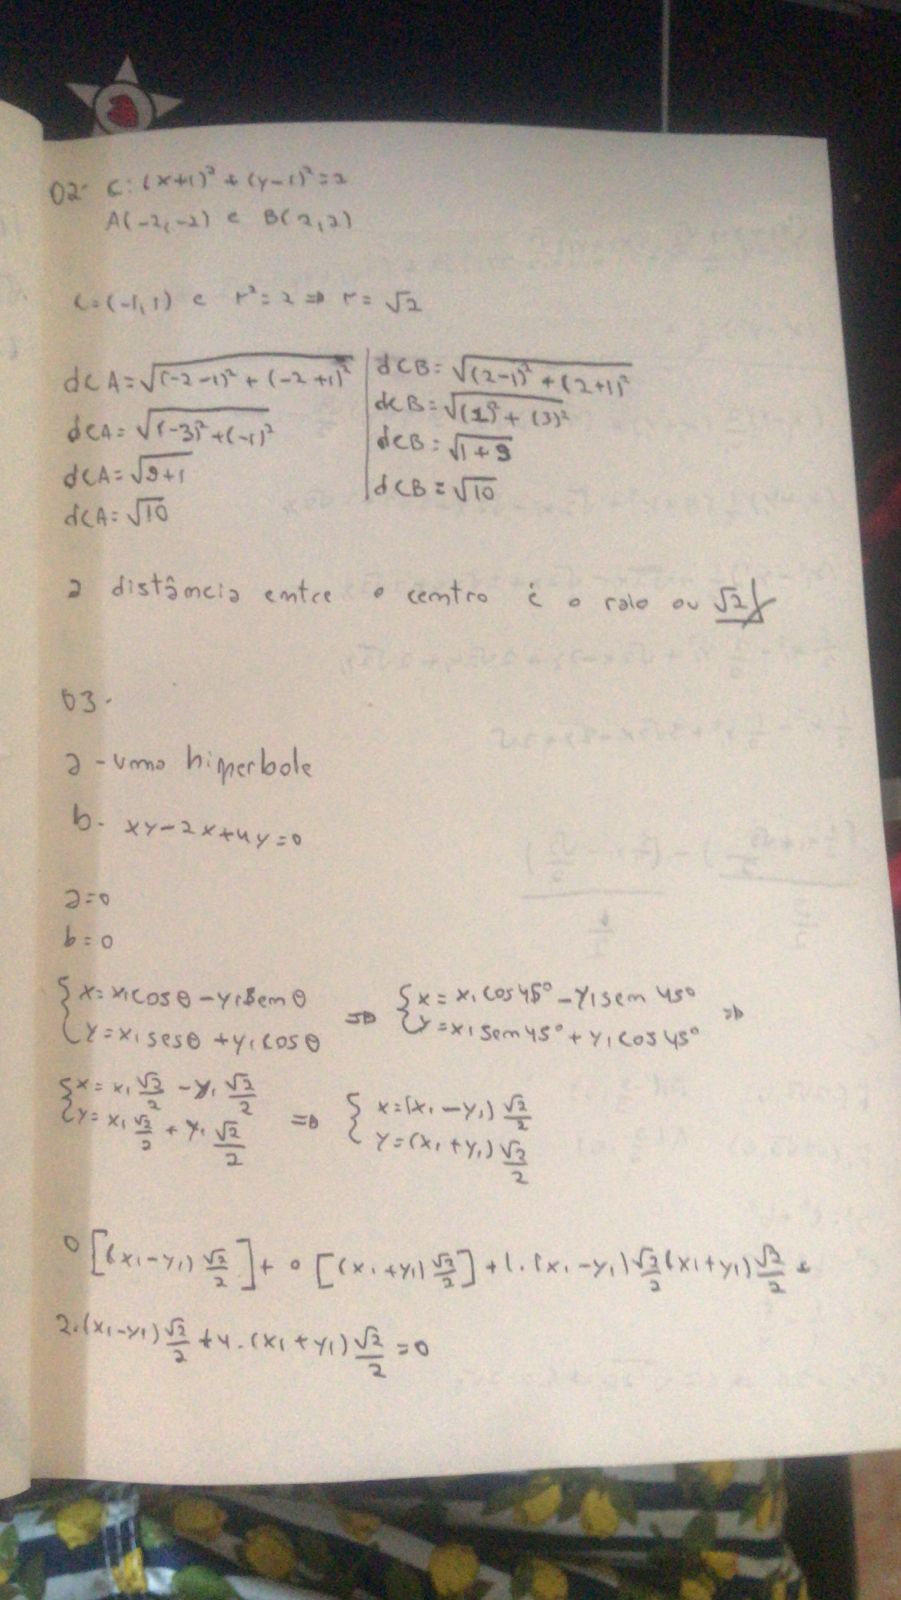 02- C: (x+1)² + (y-1)² = 2
A(-2,-2) e B(2,2)
C=(-1,1) e r²=2 ⇒ r=√2
dCA=√(-2-1)²+(-2+1)²
dCA=√(-3)²+(-1)²
dCA=√9+1
dCA=√10
dCB=√(2-1)²+(2+1)²
dCB=√(1)²+(3)²
dCB=√1+9
dCB=√10
a distância entre o centro é o raio ou √2
03-
a - uma hiperbole
b- xy-2x+4y=0
a=0
b=0
{x=x₁cosθ-y₁senθ ⇒ {x=x₁cos45°-y₁sen45° ⇒
{y=x₁sesθ+y₁cosθ {y=x₁sen45°+y₁cos45°
{x=x₁√2/2-y₁√2/2 ⇒ {x=(x₁-y₁)√2/2
{y=x₁√2/2+y₁√2/2 {y=(x₁+y₁)√2/2
0[(x₁-y₁)√2/2]+0[(x₁+y₁)√2/2]+1.(x₁-y₁)√2/2(x₁+y₁)√2/2
2.(x₁-y₁)√2/2+4.(x₁+y₁)√2/2=0